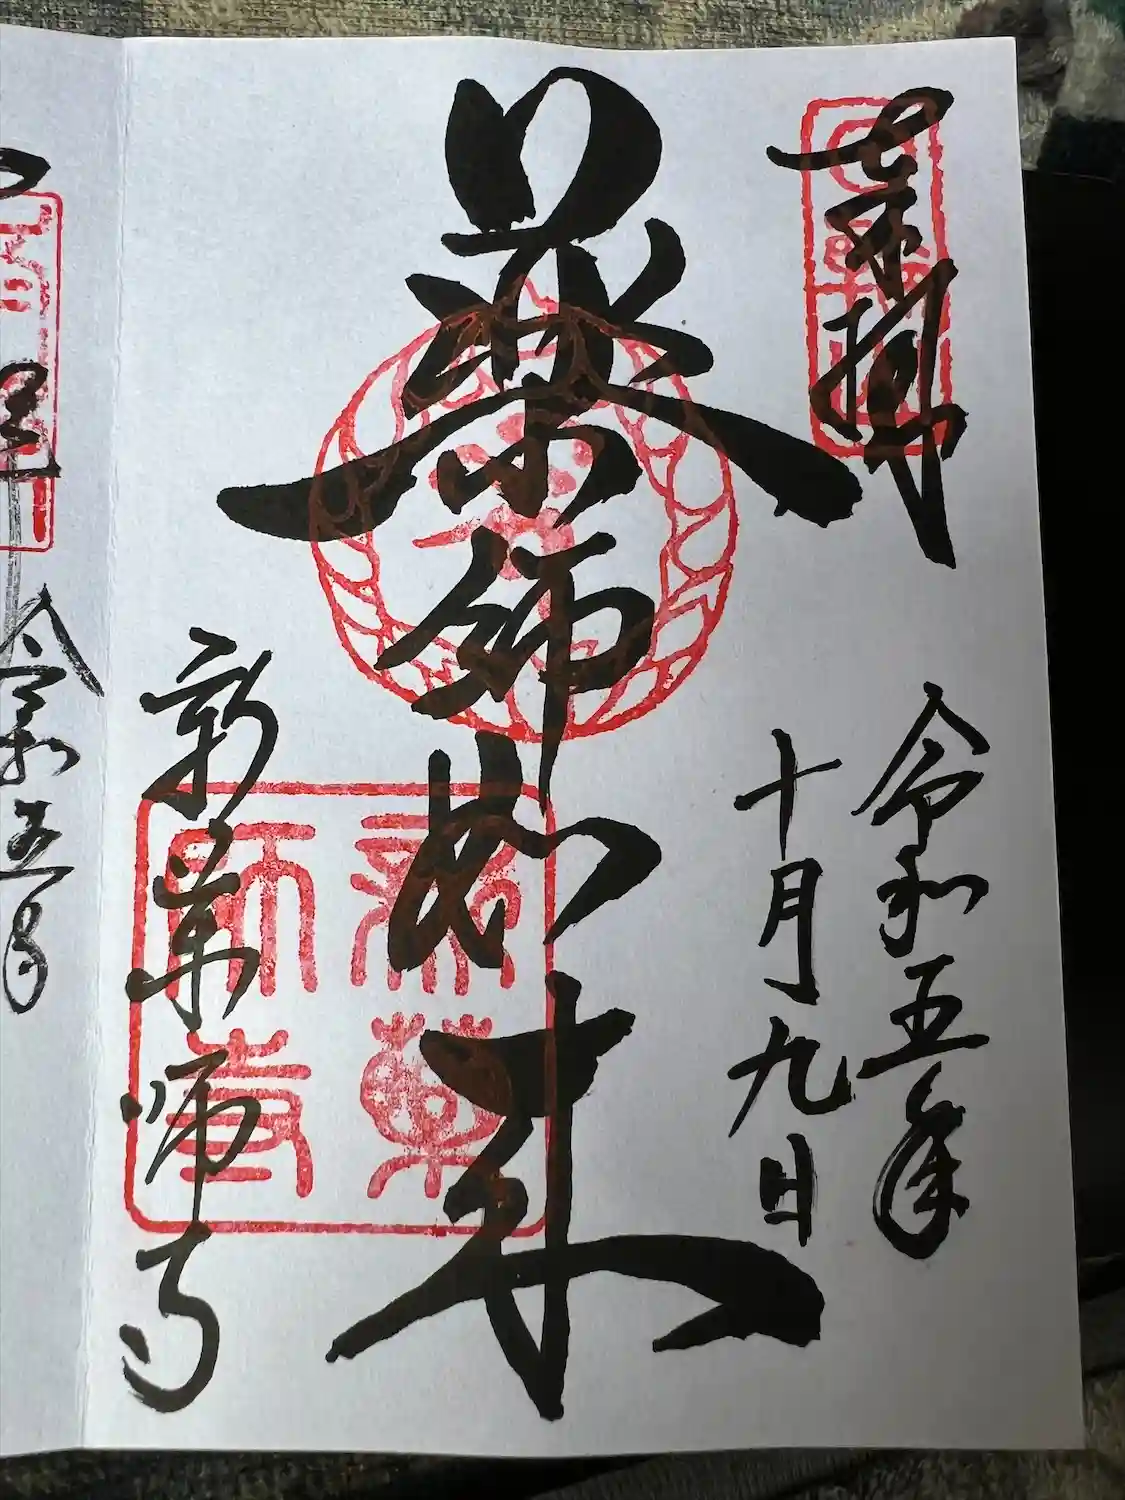 奉拝
令和五年
十月九日
薬師如来
新薬師寺
新薬
師寺
令和五年